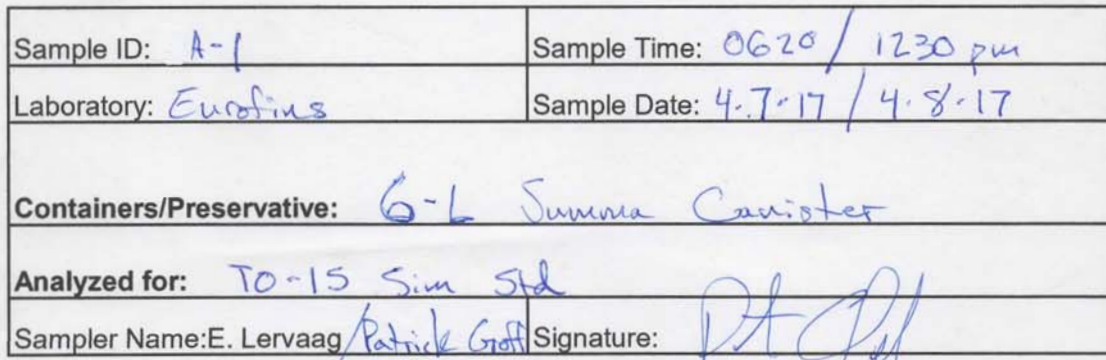 Sample ID: A-1 Sample Time: 0620 / 1230 pm
Laboratory: Eurofins Sample Date: 4.7.17 / 4.8.17
Containers/Preservative: 6-L Summa Canister
Analyzed for: TO-15 Sim Std
Sampler Name:E. Lervaag /Patrick Goff Signature: